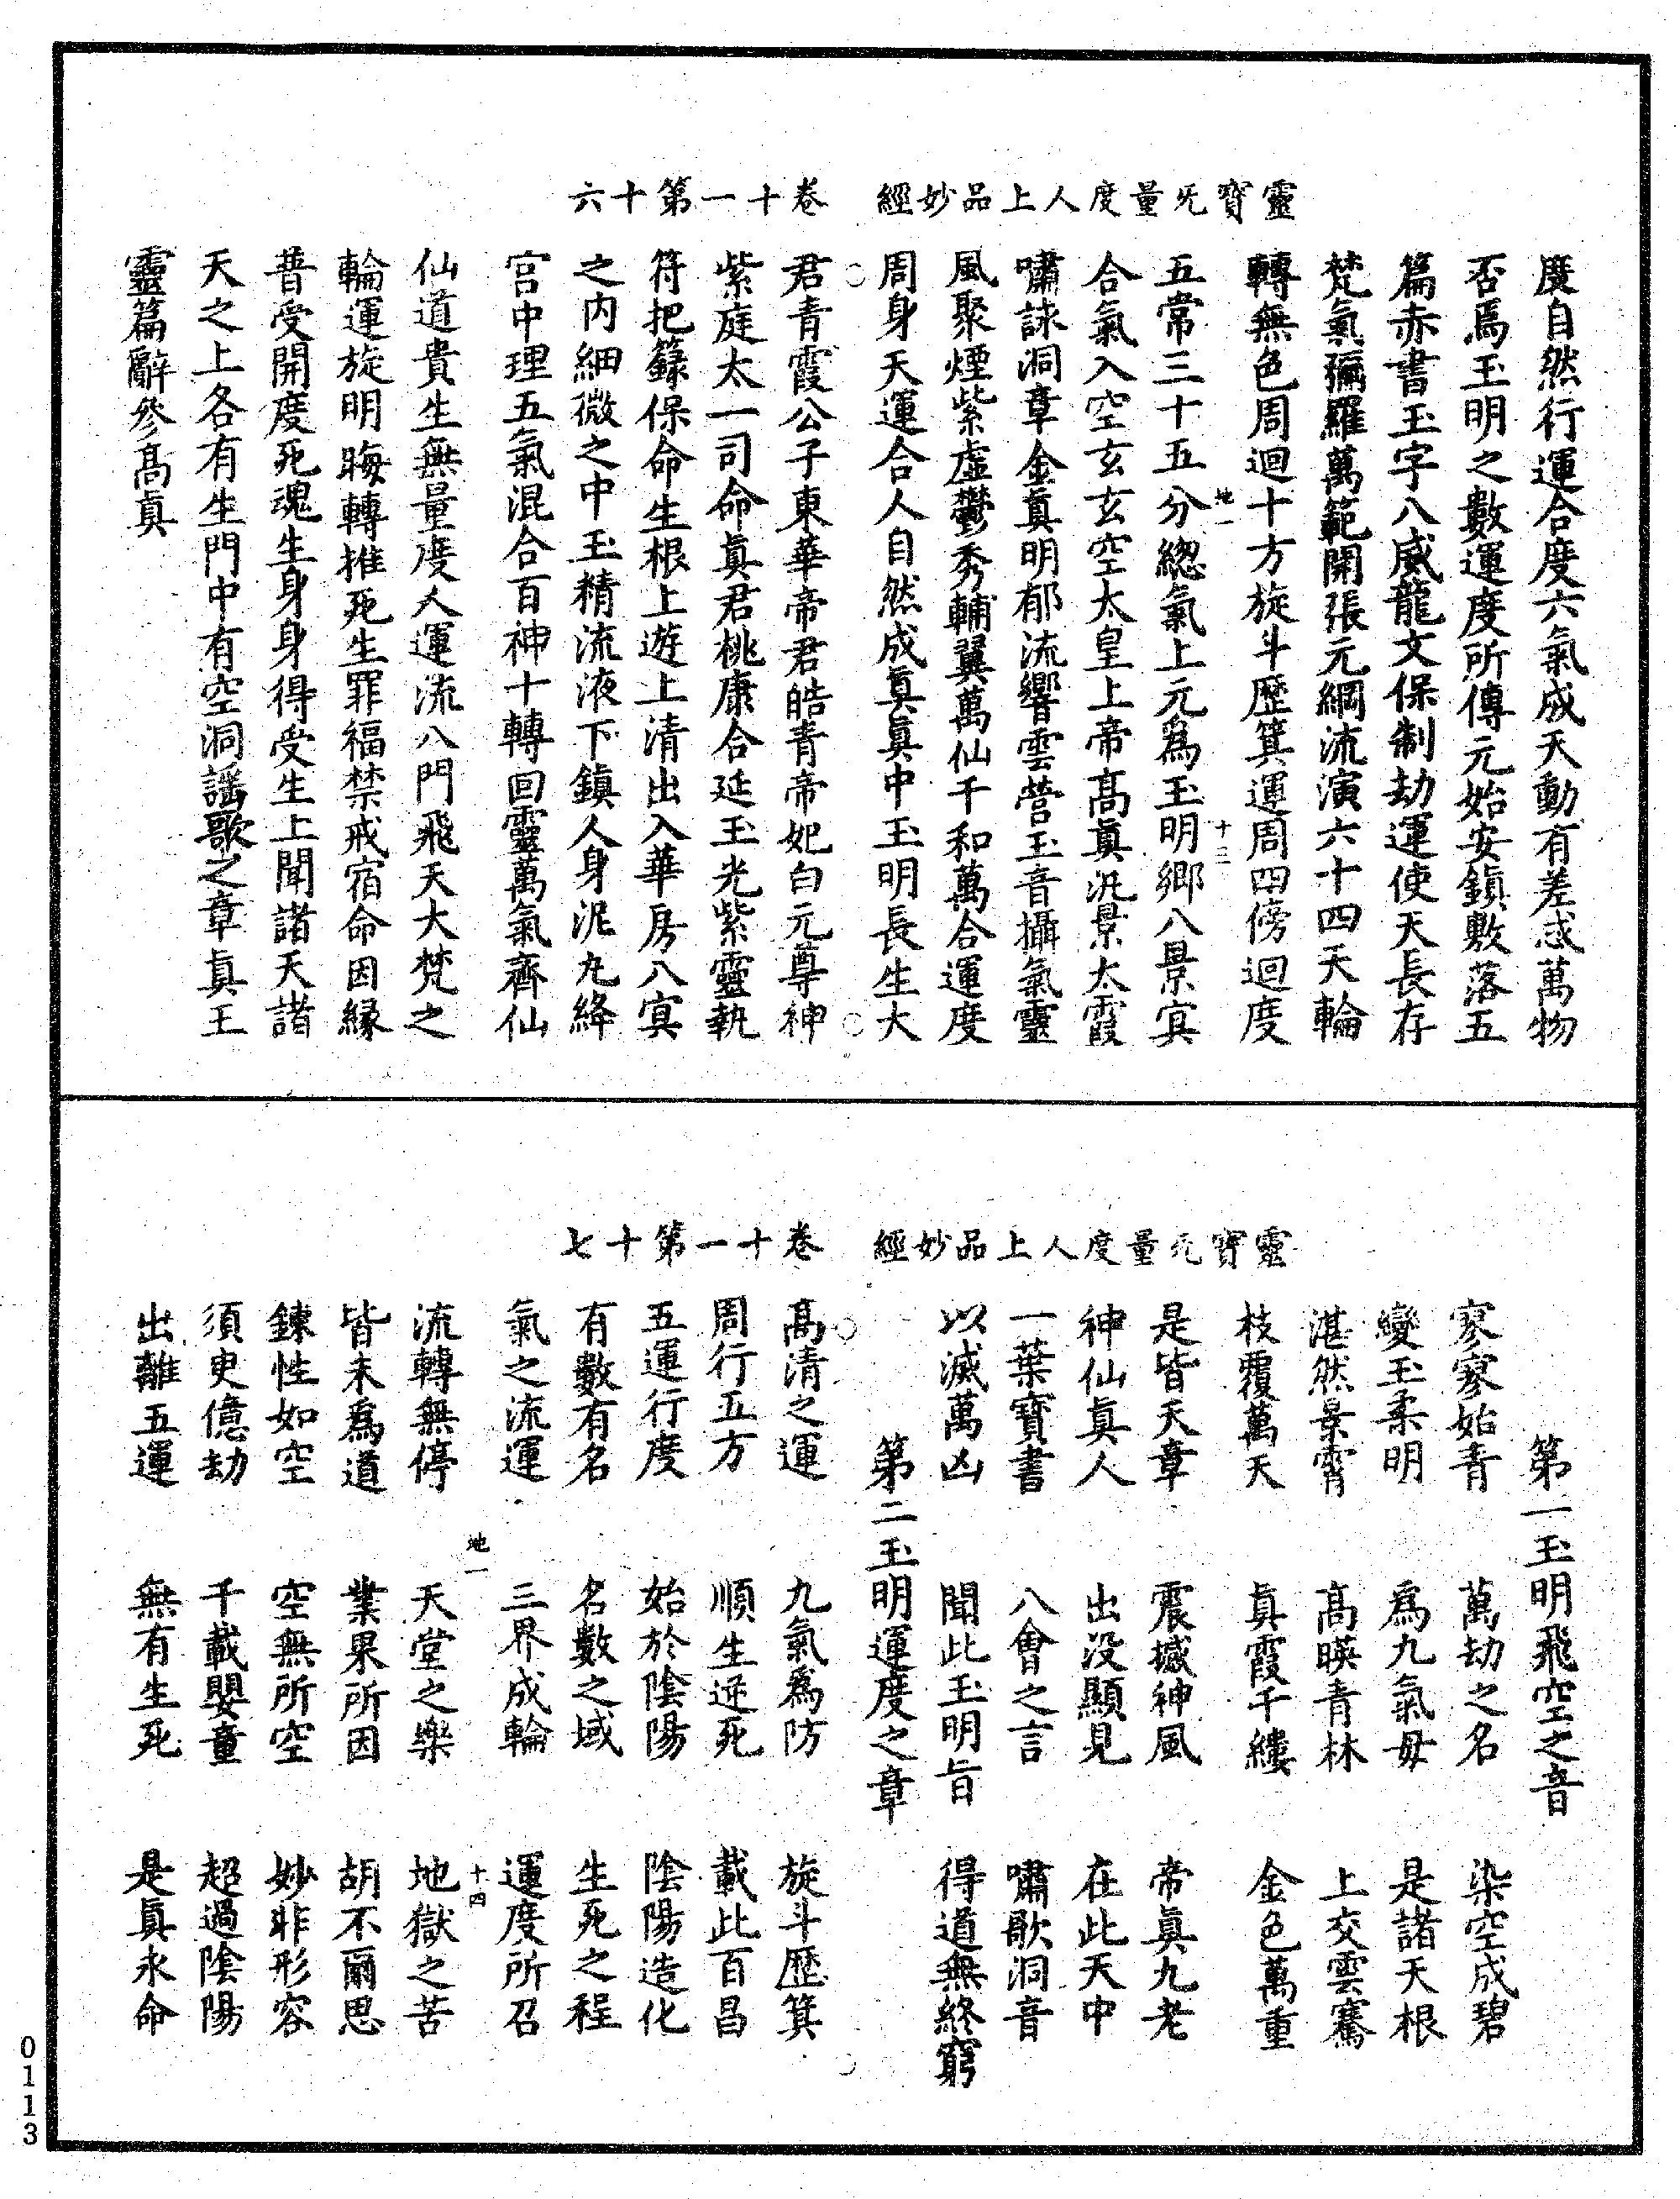 靈寶旡量度人上品妙經　卷十一第十六
度自然行運合度六氣成天動有差忒萬物
否焉玉明之數運度所傳元始安鎮敷落五
篇赤書玉字八威龍文保制劫運使天長存
梵氣彌羅萬範開張元綱流演六十四天輪
轉無色周迴十方旋斗歷箕運周四傍迴度
地一　十三
五常三十五分總氣上元爲玉明鄉八景㝠
合氣入空玄玄空太皇上帝高眞汎景太霞
嘯詠洞章金眞明郁流響雲營玉音攝氣靈
風聚煙紫虛鬱秀輔翼萬仙千和萬合運度
周身天運合人自然成眞眞中玉明長生大
君青霞公子東華帝君皓青帝妃白元尊神
紫庭太一司命眞君桃康合延玉光紫靈執
符把籙保命生根上遊上清出入華房八㝠
之内細微之中玉精流液下鎮人身泥丸絳
宮中理五氣混合百神十轉回靈萬氣齊仙
仙道貴生無量度人運流八門飛天大梵之
輪運旋明晦轉推死生罪福禁戒宿命因緣
普受開度死魂生身身得受生上聞諸天諸
天之上各有生門中有空洞謠歌之章眞王
靈篇辭參高眞
靈寶旡量度人上品妙經　卷十一第十七
第一玉明飛空之音
寥寥始青　萬劫之名　染空成碧
變玉柔明　爲九氣母　是諸天根
湛然景霄　高暎青林　上交雲騫
枝覆萬天　眞霞千縷　金色萬重
是皆天章　震撼神風　帝眞九老
神仙眞人　出没顯見　在此天中
一葉寶書　八會之言　嘯歌洞音
以滅萬凶　聞此玉明旨　得道無終窮
第二玉明運度之章
高清之運　九氣爲防　旋斗歷箕
周行五方　順生逆死　載此百昌
五運行度　始於陰陽　陰陽造化
有數有名　名數之域　生死之程
氣之流運　三界成輪　運度所召
地一　十四
流轉無停　天堂之樂　地獄之苦
皆未爲道　業果所因　胡不爾思
鍊性如空　空無所空　妙非形容
須臾億劫　千載嬰童　超過陰陽
出離五運　無有生死　是眞永命
0113